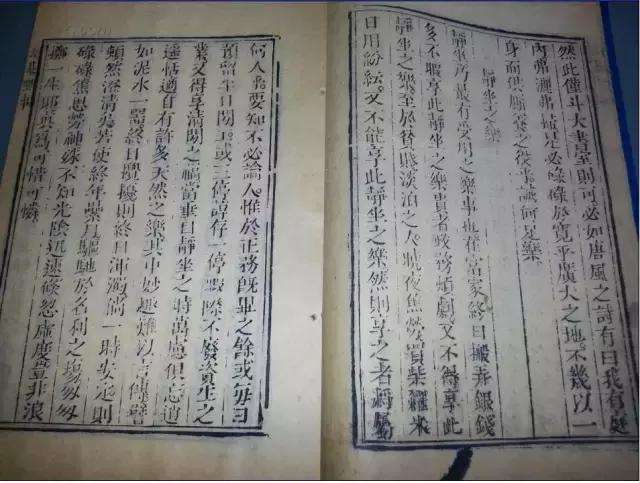 然此僅斗大書室則可必如唐風之詩有曰我有庭
內弗灑弗埽是必碌碌於寬乎廣大之地不幾以一
身而供廝養之役未識何足樂
靜坐之樂
靜坐乃日用之樂事也在富家終日搬弄銀錢
多不暇享此靜坐之樂貴者政務煩劇又不得享此
靜坐之樂至於貧賤淡泊之人夙夜焦勞貿柴糴米
日用紛紜又不能享此靜坐之樂然則享之者將屬
何人耶要知不必論人惟於正務既畢之餘或每日
預留半日閒工或三停暫存一停暇隙不廢資生之
業又得享清閒之福當垂目靜坐之時萬慮俱忘逍
遙恬適自有許多天然之樂其中妙趣難以言陳譬
如泥水一器終日攪擾則終日渾濁倘一時安定則
頓然澄清矣若使終年纍月驅馳於名利之場匆匆
碌碌焦思勞神殊不知光陰迅速倏忽虛度豈非浪
擲一生耶真為可惜可憐